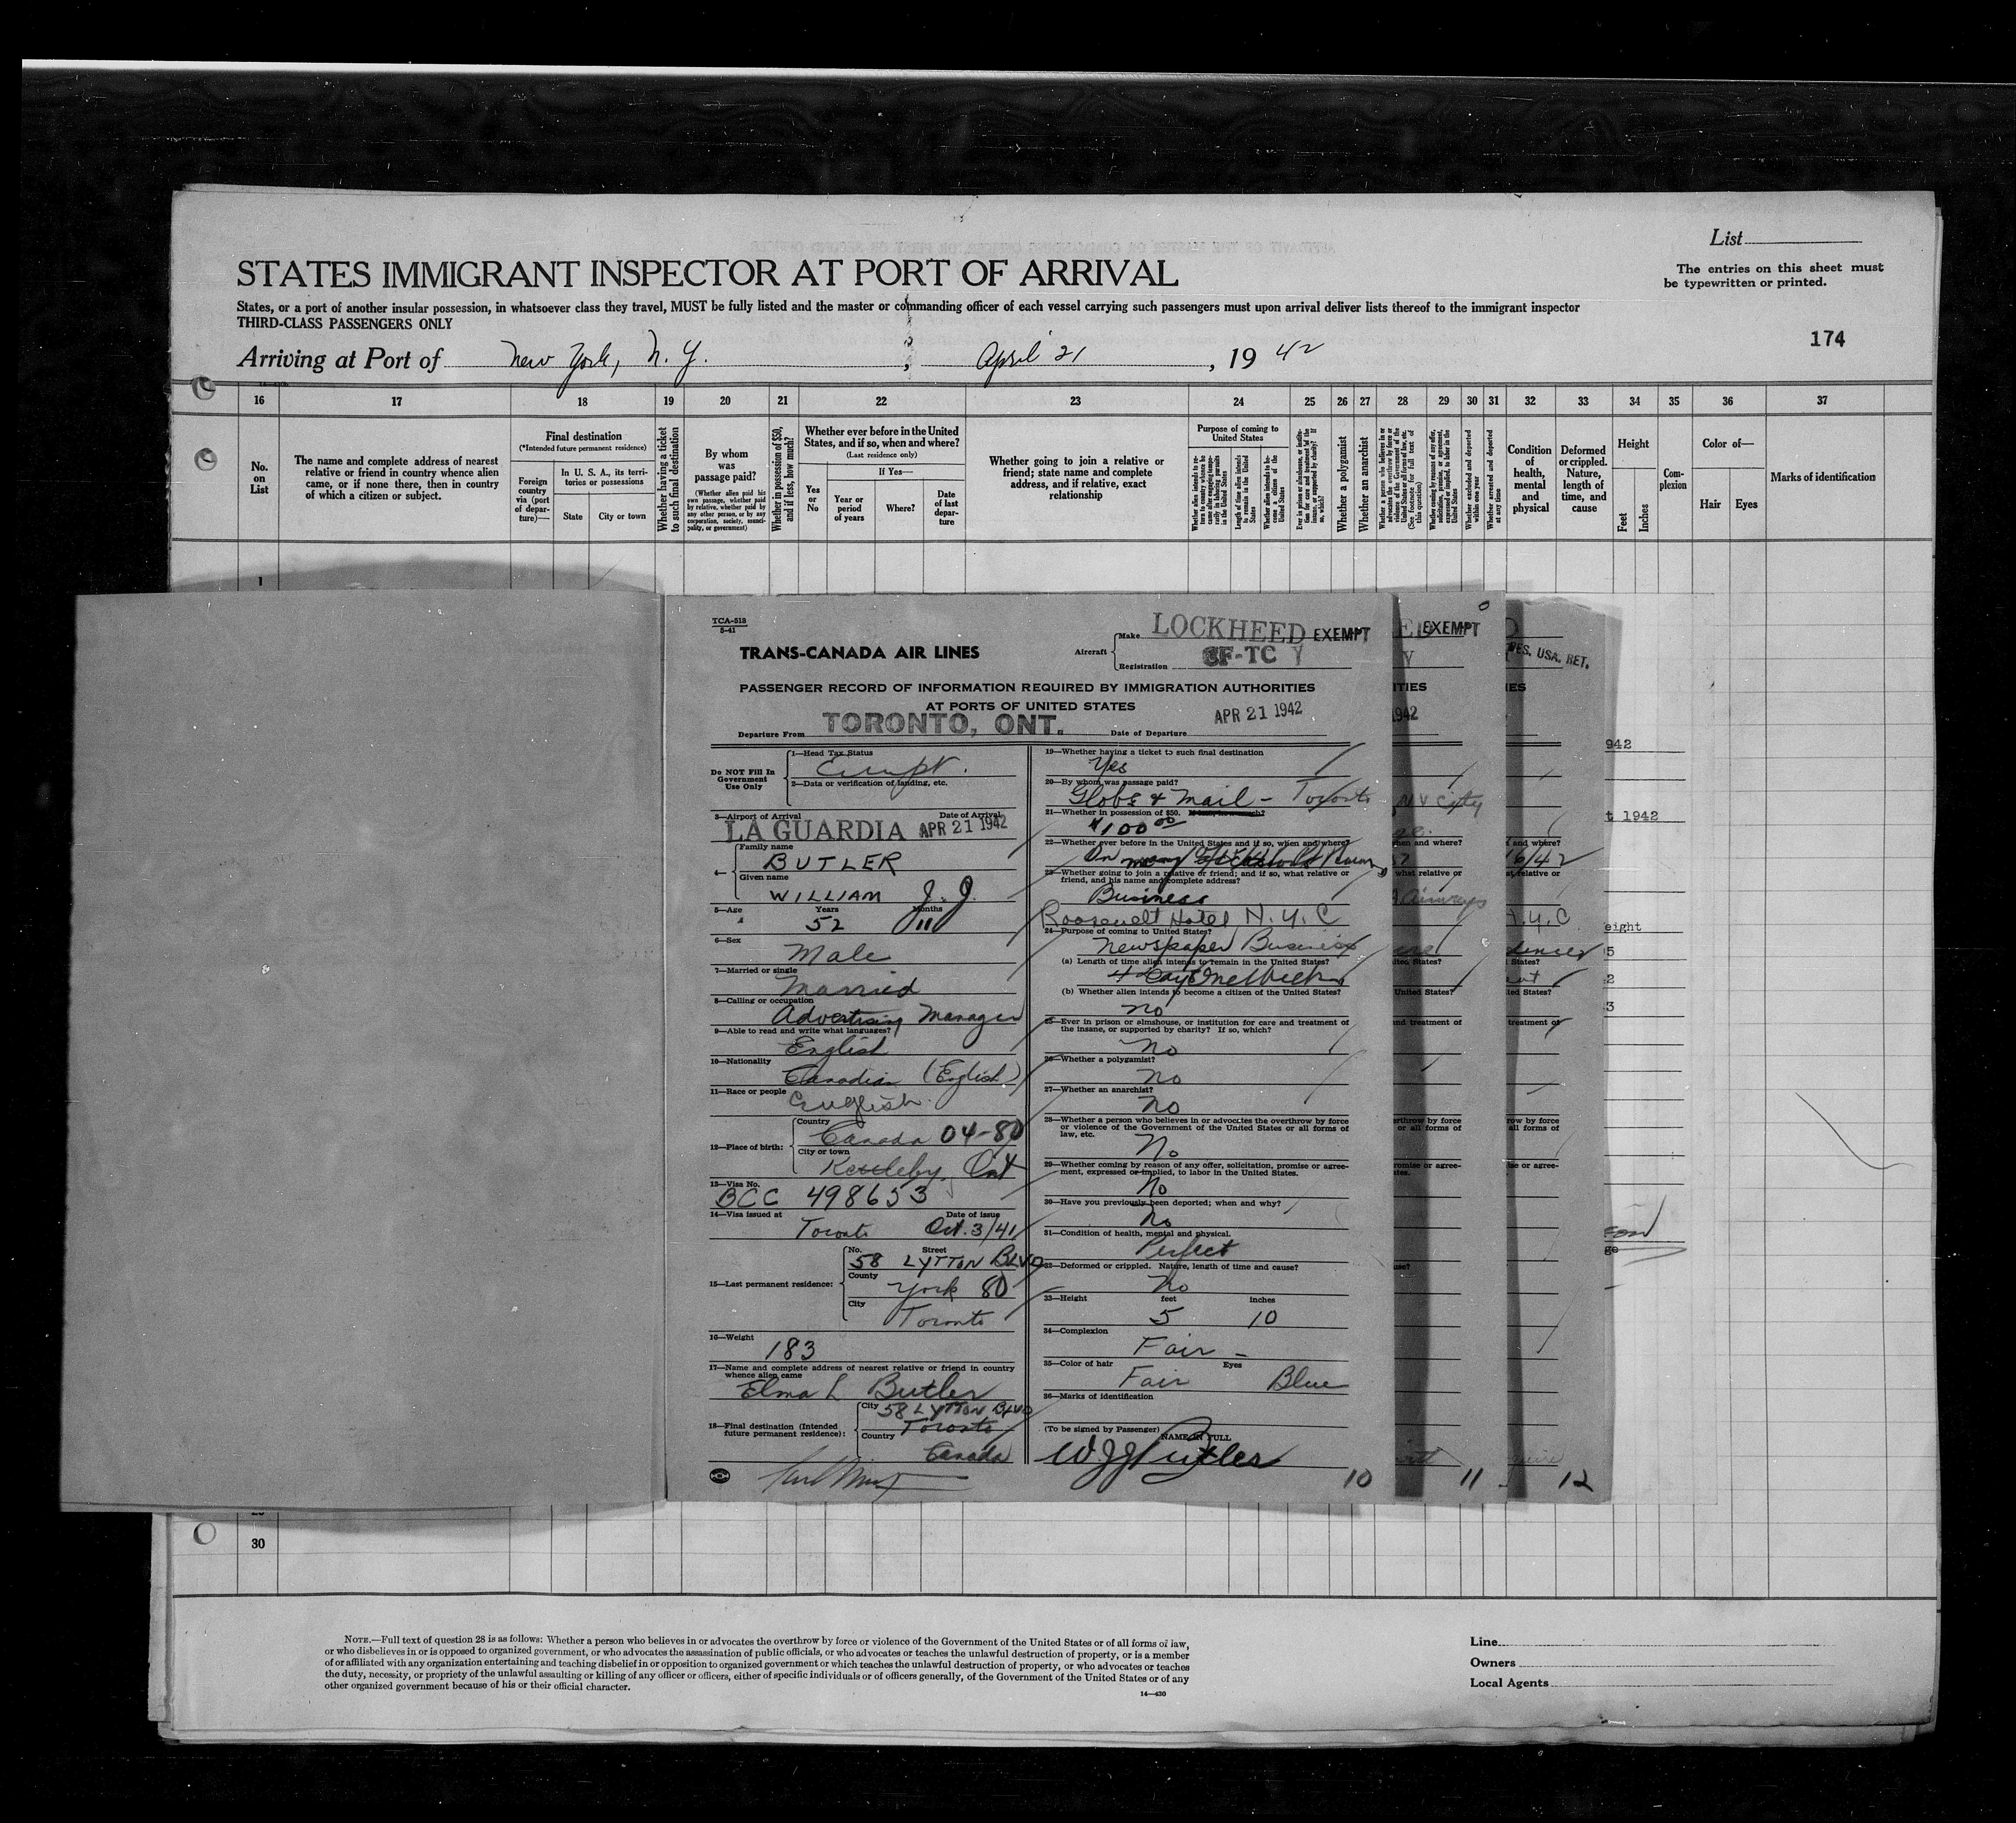 List
STATES IMMIGRANT INSPECTOR AT PORT OF ARRIVAL
The entries on this sheet must
be typewritten or printed.
States, or a port of another insular possession, in whatsoever class they travel, MUST be fully listed and the master or commanding officer of each vessel carrying such passengers must upon arrival deliver lists thereof to the immigrant inspector
THIRD-CLASS PASSENGERS ONLY
174
Arriving at Port of New York, N. Y. , April 21 , 19 42
16 17 18 19 20 21 22 23 24 25 26 27 28 29 30 31 32 33 34 35 36 37
No.
on
List
The name and complete address of nearest
relative or friend in country whence alien
came, or if none there, then in country
of which a citizen or subject.
Final destination
(*Intended future permanent residence)
Foreign
country
via (port
of depar-
ture)—
In U. S. A., its terri-
tories or possessions
State
City or town
Whether having a ticket
to such final destination
By whom
was
passage paid?
(Whether alien paid his
own passage, whether paid
by relative, whether paid by
any other person, or by any
corporation, society, munici-
pality, or government)
Whether in possession of $50,
and if less, how much?
Whether ever before in the United
States, and if so, when and where?
(Last residence only)
Yes
or
No
If Yes—
Year or
period
of years
Where?
Date
of last
depar-
ture
Whether going to join a relative or
friend; state name and complete
address, and if relative, exact
relationship
Purpose of coming to
United States
Whether a polygamist
Whether an anarchist
Whether excluded and deported
within one year
Whether arrested and deported
at any time
Condition
of
health,
mental
and
physical
Deformed
or crippled.
Nature,
length of
time, and
cause
Height
Feet
Inches
Com-
plexion
Color of—
Hair
Eyes
Marks of identification
1
TCA-518
5-41
TRANS-CANADA AIR LINES
Aircraft
Make LOCKHEED EXEMPT
Registration CF-TC Y
PASSENGER RECORD OF INFORMATION REQUIRED BY IMMIGRATION AUTHORITIES
AT PORTS OF UNITED STATES
Departure From TORONTO, ONT. Date of Departure APR 21 1942
Do NOT Fill In
Government
Use Only
1—Head Tax Status
Exempt.
2—Data or verification of landing, etc.
3—Airport of Arrival Date of Arrival
LA GUARDIA APR 21 1942
4—
Family name
BUTLER
Given name
WILLIAM J. J.
5—Age Years Months
52 11
6—Sex
Male
7—Married or single
Married
8—Calling or occupation
Advertising Manager
9—Able to read and write what languages?
English
10—Nationality
Canadian (English)
11—Race or people
English.
12—Place of birth:
Country
Canada 04-80
City or town
Kettleby, Ont
13—Visa No.
BCC 498653
14—Visa issued at Date of issue
Toronto Oct. 3/41
15—Last permanent residence:
No. Street
58 LYTTON BLVD
County
York 80
City
Toronto
16—Weight
183
17—Name and complete address of nearest relative or friend in country
whence alien came
Elma L Butler
18—Final destination (Intended
future permanent residence):
City 58 LYTTON BLVD
Toronto
Country
Canada
19—Whether having a ticket to such final destination
Yes
20—By whom was passage paid?
Globe & Mail - Toronto
21—Whether in possession of $50. If less, how much?
$100 00
22—Whether ever before in the United States and if so, when and where?
On many
23—Whether going to join a relative or friend; and if so, what relative or
friend, and his name and complete address?
Business
Roosevelt Hotel, N.Y.C
24—Purpose of coming to United States?
Newspaper Business
(a) Length of time alien intends to remain in the United States?
One Week
(b) Whether alien intends to become a citizen of the United States?
No
25—Ever in prison or almshouse, or institution for care and treatment of
the insane, or supported by charity? If so, which?
No
26—Whether a polygamist?
No
27—Whether an anarchist?
No
28—Whether a person who believes in or advocates the overthrow by force
or violence of the Government of the United States or all forms of
law, etc.
No
29—Whether coming by reason of any offer, solicitation, promise or agree-
ment, expressed or implied, to labor in the United States.
No
30—Have you previously been deported; when and why?
No
31—Condition of health, mental and physical.
Perfect
32—Deformed or crippled. Nature, length of time and cause?
No
33—Height feet inches
5 10
34—Complexion
Fair -
35—Color of hair Eyes
Fair Blue
36—Marks of identification
(To be signed by Passenger) NAME IN FULL
W J J Butler
10
EXEMPT
11
USA. RET.
12
30
NOTE.—Full text of question 28 is as follows: Whether a person who believes in or advocates the overthrow by force or violence of the Government of the United States or of all forms of law,
or who disbelieves in or is opposed to organized government, or who advocates the assassination of public officials, or who advocates or teaches the unlawful destruction of property, or is a member
of or affiliated with any organization entertaining and teaching disbelief in or opposition to organized government or which teaches the unlawful destruction of property, or who advocates or teaches
the duty, necessity, or propriety of the unlawful assaulting or killing of any officer or officers, either of specific individuals or of officers generally, of the Government of the United States or of any
other organized government because of his or their official character.
14—430
Line
Owners
Local Agents